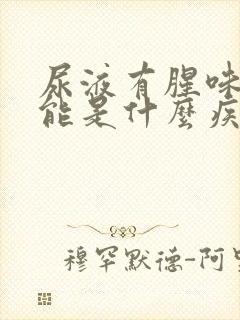 尿液有腥味
能是什麼疾
穆罕默德-阿